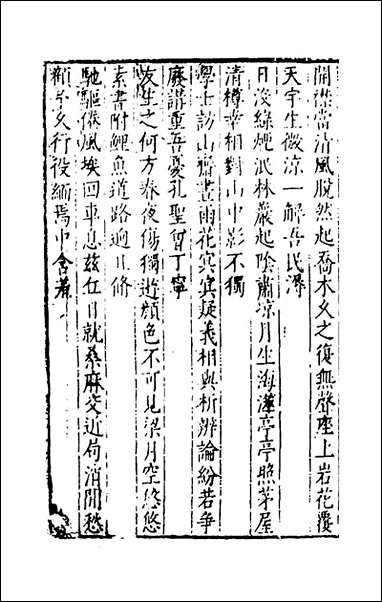 開襟當清風脫然起喬木久之復無聲座上岩花覆
天宇生微涼一解吾民溽
日沒綠煙泯林巖起陰肅涼月生海灣亭亭照茅屋
清樽幸相對山中影不獨
學士訪山齋晝雨花冥冥疑義相與析辨論紛若爭
廢講重吾憂孔聖曾丁寧
友生之何方春夜傷獨遊顏色不可見梁月空悠悠
素書附鯉魚道路迥且脩
馳驅倦風埃回車息茲丘日就桑麻交近局消閒愁
顧予久行役緬焉中含羞